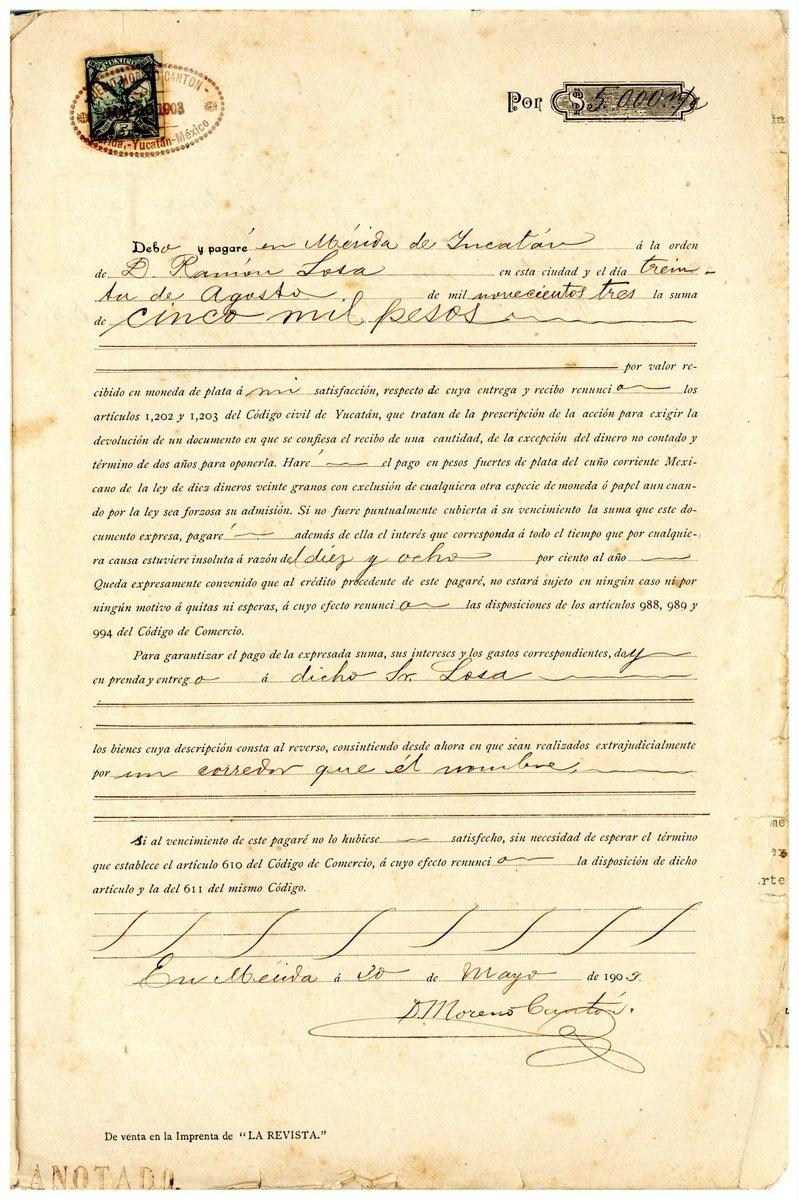 MEXICO
MORENO CANTON
1903
Mérida,-Yucatán-México
Por $5.000
Debo y pagaré en Mérida de Yucatán á la orden
de D. Ramón Losa en esta ciudad y el día trein-
ta de Agosto de mil novecientos tres la suma
de cinco mil pesos
por valor re-
cibido en moneda de plata á mi satisfacción, respecto de cuya entrega y recibo renuncio los
artículos 1,202 y 1,203 del Código civil de Yucatán, que tratan de la prescripción de la acción para exigir la
devolución de un documento en que se confiesa el recibo de una cantidad, de la excepción del dinero no contado y
término de dos años para oponerla. Haré el pago en pesos fuertes de plata del cuño corriente Mexi-
cano de la ley de diez dineros veinte granos con exclusión de cualquiera otra especie de moneda ó papel aun cuan-
do por la ley sea forzosa su admisión. Si no fuere puntualmente cubierta á su vencimiento la suma que este do-
cumento expresa, pagaré además de ella el interés que corresponda á todo el tiempo que por cualquie-
ra causa estuviere insoluta á razón del diez y ocho por ciento al año
Queda expresamente convenido que al crédito procedente de este pagaré, no estará sujeto en ningún caso ni por
ningún motivo á quitas ni esperas, á cuyo efecto renuncio las disposiciones de los artículos 988, 989 y
994 del Código de Comercio.
Para garantizar el pago de la expresada suma, sus intereses y los gastos correspondientes, doy
en prenda y entrego á dicho Sr. Losa
los bienes cuya descripción consta al reverso, consintiendo desde ahora en que sean realizados extrajudicialmente
por un corredor que él nombre,
Si al vencimiento de este pagaré no lo hubiese satisfecho, sin necesidad de esperar el término
que establece el artículo 610 del Código de Comercio, á cuyo efecto renuncio la disposición de dicho
artículo y la del 611 del mismo Código.
En Mérida á 30 de Mayo de 1903.
D. Moreno Cantón.
De venta en la Imprenta de "LA REVISTA."
ANOTADO